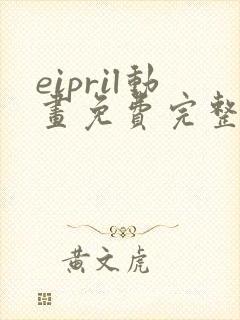 eipril動
畫免費完整
黃文虎